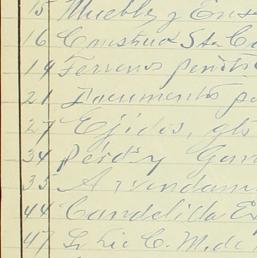 15 Mueble y Ense
16 Construc Sta Ca
19 Terrenos pendie
21 Documentos po
27 Ejidos, gts
34 Pérd y Gana
35 Arrendam
44 Candelilla Ex
47 C. M. de